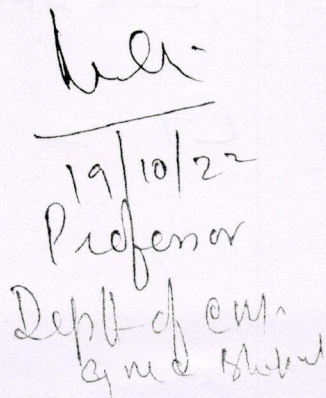 19/10/22
Professor
Deptt of CM.
GMC Bhopal